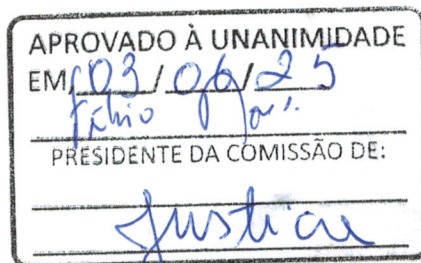 APROVADO À UNANIMIDADE
EM, 03 / 06 / 25
Fábio
PRESIDENTE DA COMISSÃO DE:
Justiça